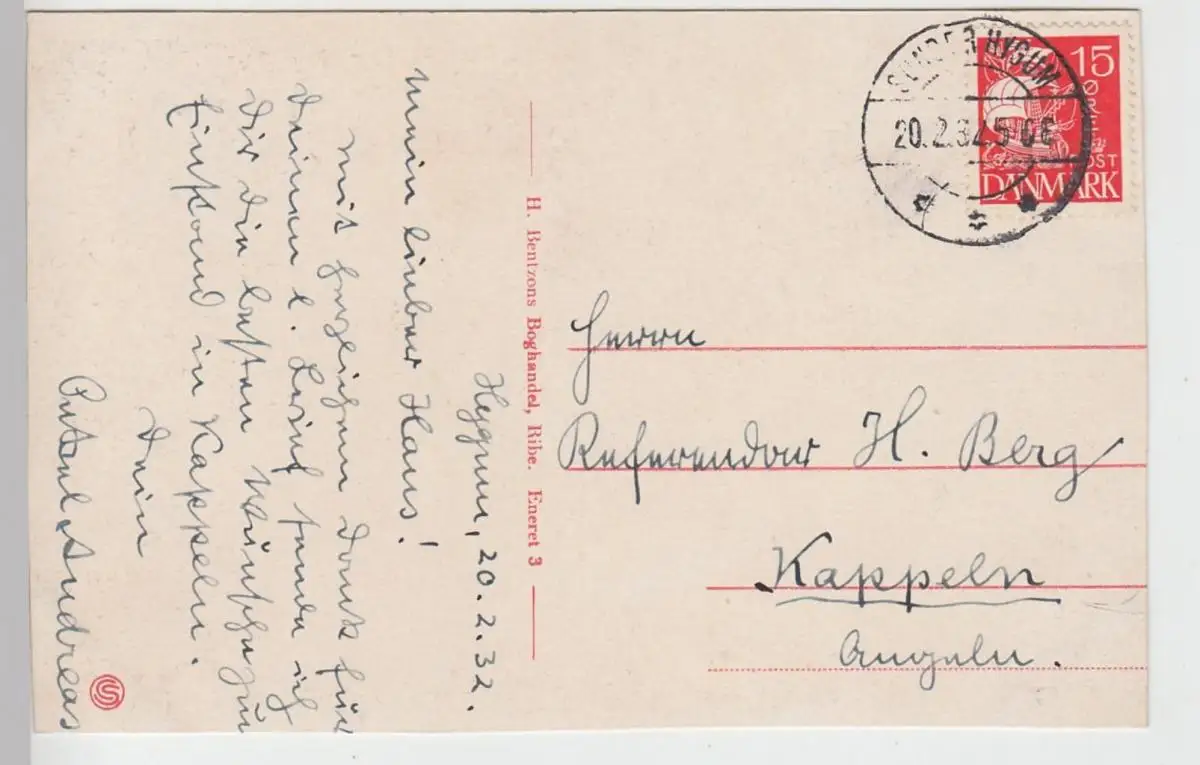 Hygum, 20.2.32.
Mein lieber Hans!
Mit herzlichem Dank für
Deinen l. Brief sende ich
Dir die besten Wünsche zum
in Kappeln.
Dein
Andreas
H. Bentzons Boghandel, Ribe. Eneret 3
SØNDER HYGUM
20.2.32.5
15
ØRE
POST
DANMARK
Herrn
Referendar H. Berg
Kappeln
Angeln.